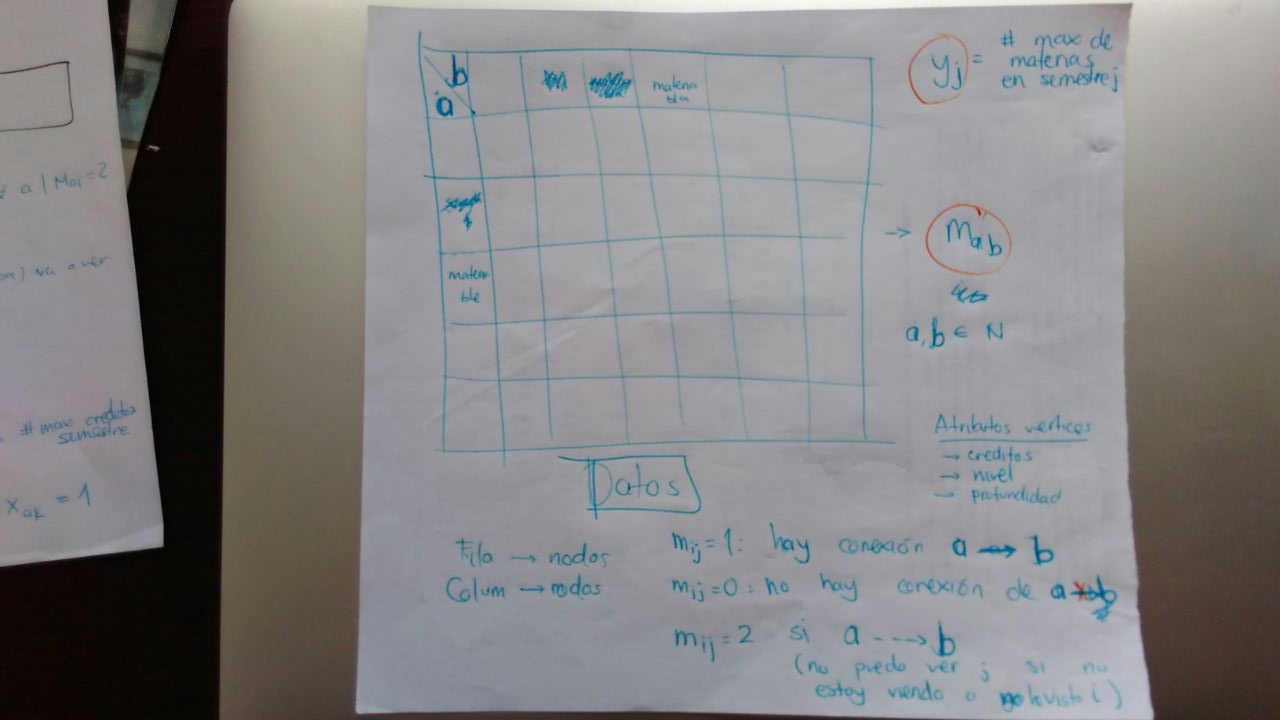 a | Mai=2
va a ver
# max creditos
semestre
x_ak = 1
b
a
materia
bla
materia
ble
yj = # max de
materias
en semestre j
→ m_ab
a, b ∈ N
Atributos vertices
→ creditos
→ nivel
→ profundidad
Datos
Fila → nodos
Colum → nodos
m_ij = 1: hay conexión a → b
m_ij = 0: no hay conexión de a → b
m_ij = 2 si a ---→ b
(no puedo ver j si no
estoy viendo o he visto i)